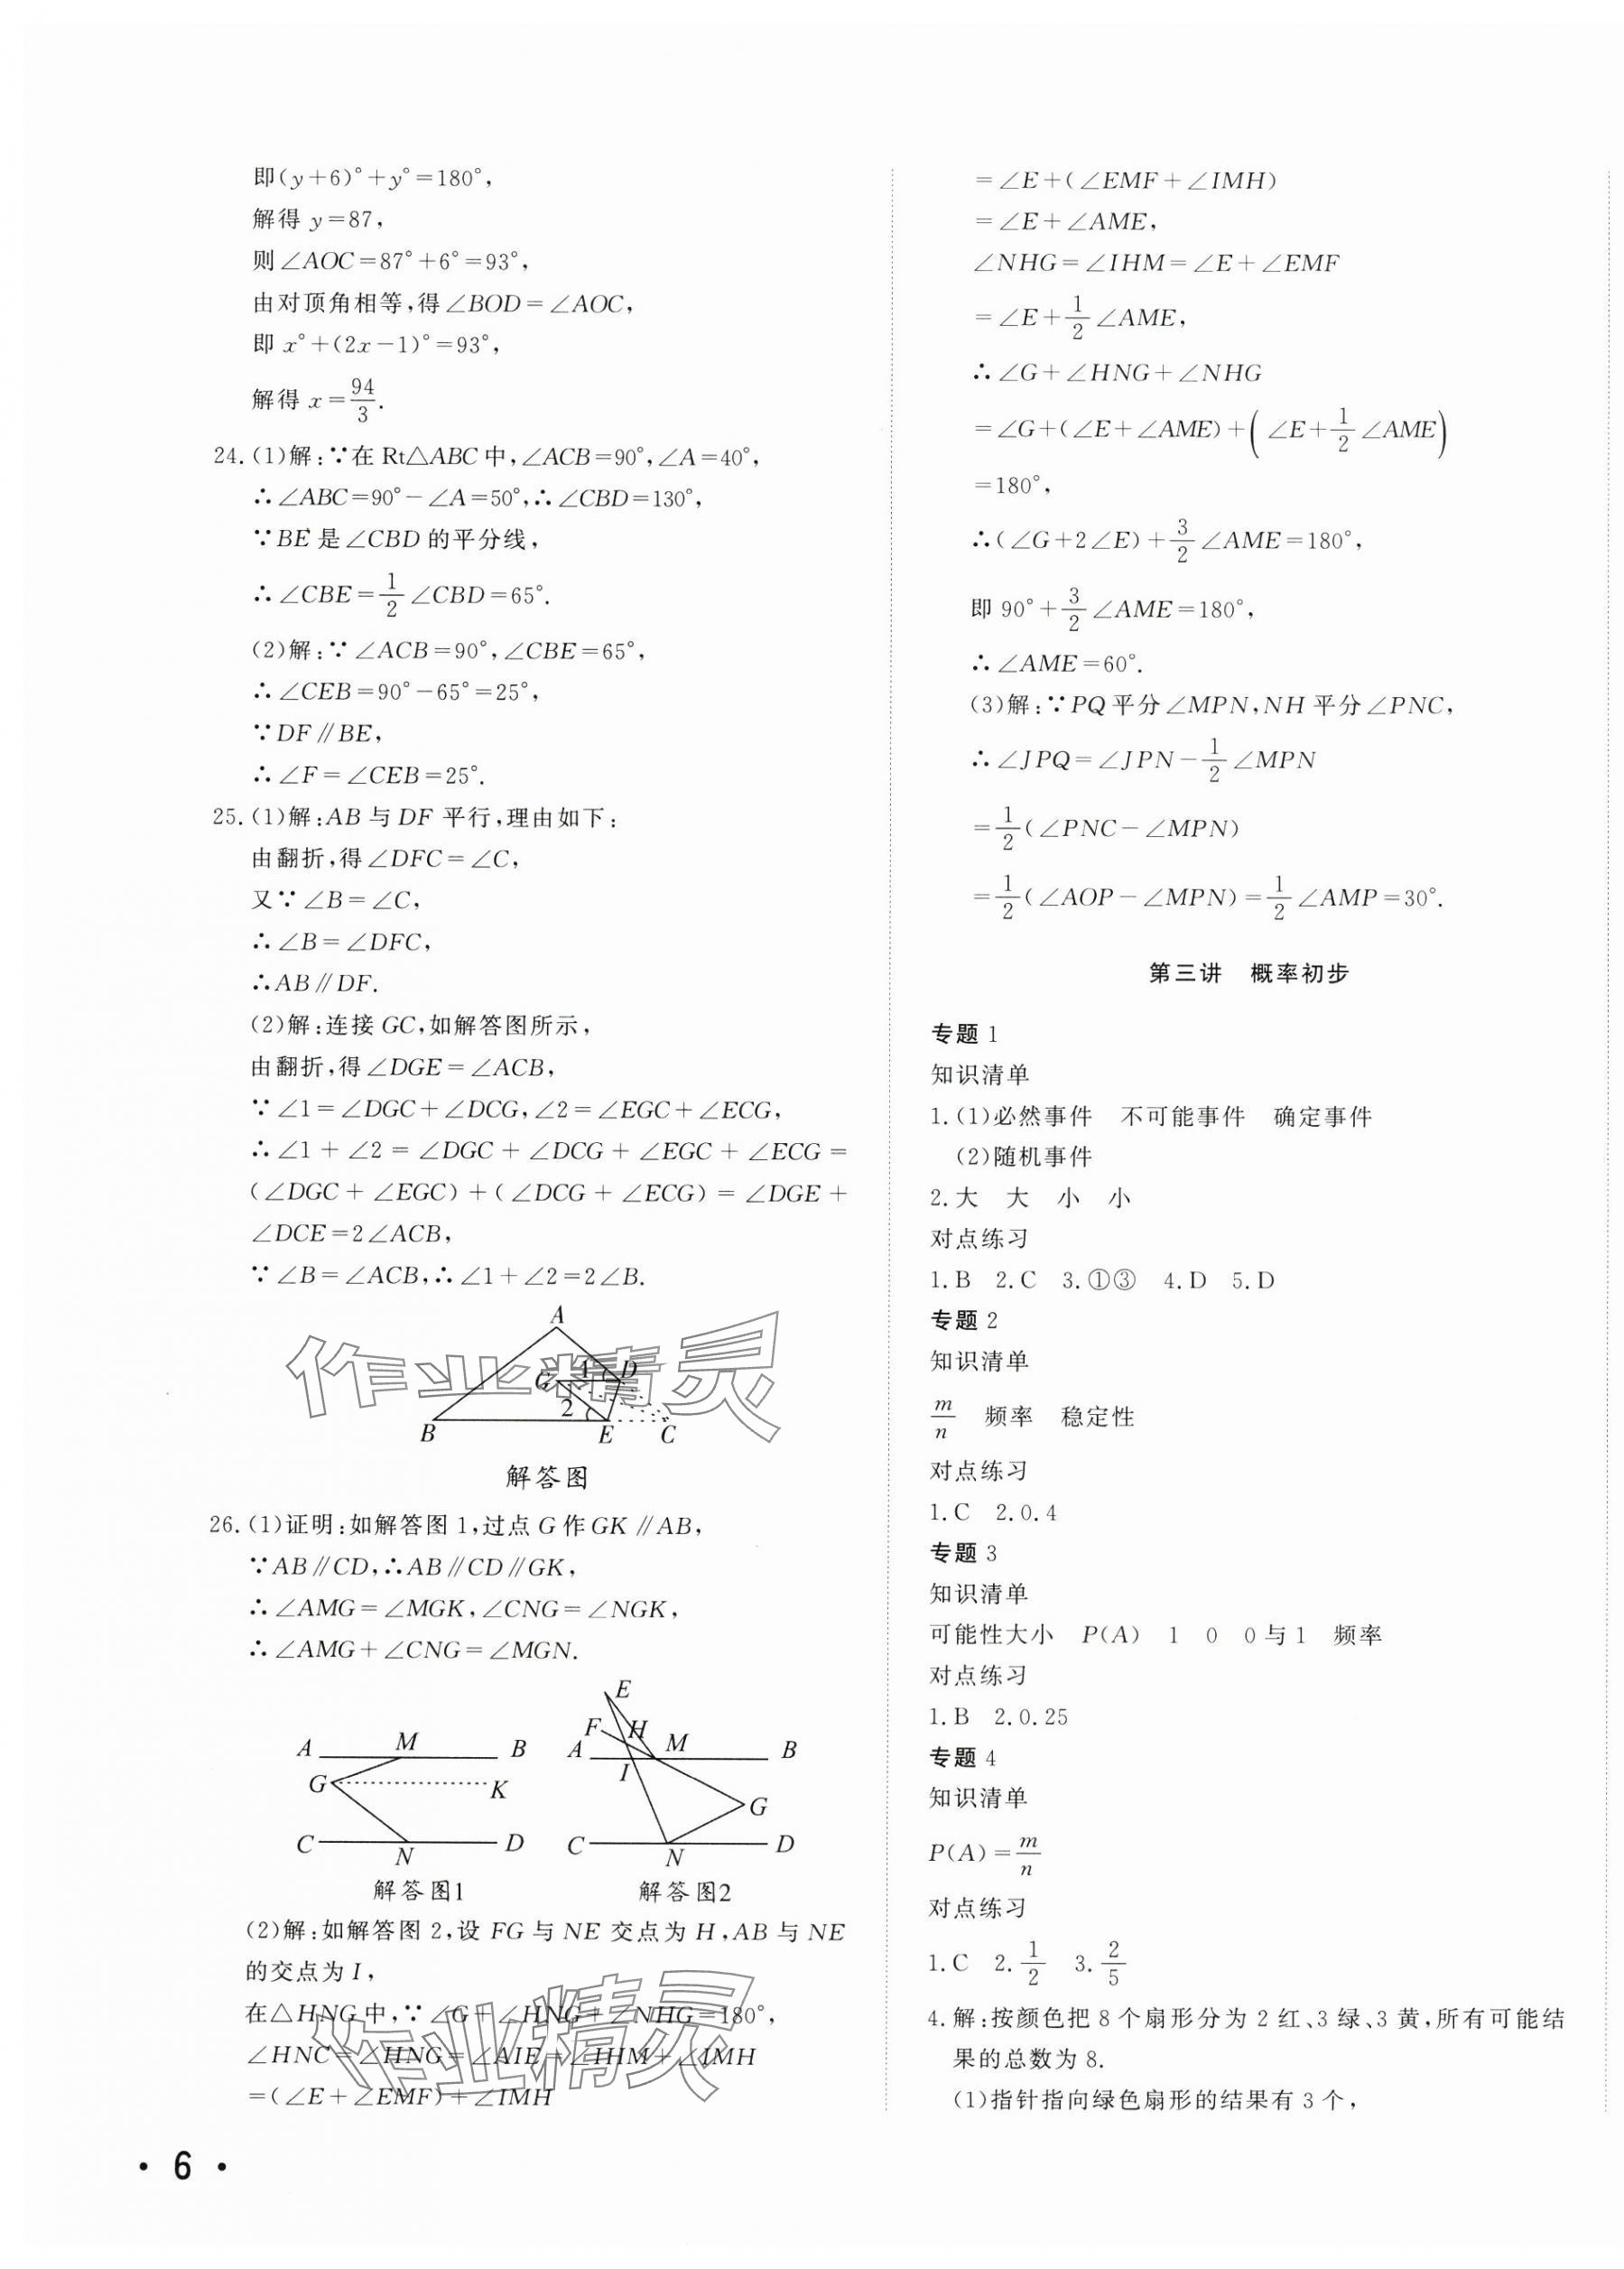 即(y+6)°+y°=180°,
解得 y=87,
则∠AOC=87°+6°=93°,
由对顶角相等,得∠BOD=∠AOC,
即 x°+(2x-1)°=93°,
解得 x=94/3.
24.(1)解:∵在 Rt△ABC 中,∠ACB=90°,∠A=40°,
∴∠ABC=90°-∠A=50°,∴∠CBD=130°,
∵BE 是∠CBD 的平分线,
∴∠CBE=1/2∠CBD=65°.
(2)解:∵∠ACB=90°,∠CBE=65°,
∴∠CEB=90°-65°=25°,
∵DF∥BE,
∴∠F=∠CEB=25°.
25.(1)解:AB 与 DF 平行,理由如下:
由翻折,得∠DFC=∠C,
又∵∠B=∠C,
∴∠B=∠DFC,
∴AB∥DF.
(2)解:连接 GC,如解答图所示,
由翻折,得∠DGE=∠ACB,
∵∠1=∠DGC+∠DCG,∠2=∠EGC+∠ECG,
∴∠1+∠2=∠DGC+∠DCG+∠EGC+∠ECG=
(∠DGC+∠EGC)+(∠DCG+∠ECG)=∠DGE+
∠DCE=2∠ACB,
∵∠B=∠ACB,∴∠1+∠2=2∠B.
A
G 1 D
2
B E C
作业精灵
解答图
26.(1)证明:如解答图 1,过点 G 作 GK∥AB,
∵AB∥CD,∴AB∥CD∥GK,
∴∠AMG=∠MGK,∠CNG=∠NGK,
∴∠AMG+∠CNG=∠MGN.
A M B
G K
C N D
解答图1
E
F H
A M B
I
G
C N D
解答图2
(2)解:如解答图 2,设 FG 与 NE 交点为 H,AB 与 NE
的交点为 I,
在△HNG 中,∵∠G+∠HNG+∠NHG=180°,
∠HNC=∠HNG=∠AIE=∠IHM+∠IMH
=(∠E+∠EMF)+∠IMH
作业精灵
• 6 •
=∠E+(∠EMF+∠IMH)
=∠E+∠AME,
∠NHG=∠IHM=∠E+∠EMF
=∠E+1/2∠AME,
∴∠G+∠HNG+∠NHG
=∠G+(∠E+∠AME)+(∠E+1/2∠AME)
=180°,
∴(∠G+2∠E)+3/2∠AME=180°,
即 90°+3/2∠AME=180°,
∴∠AME=60°.
(3)解:∵PQ 平分∠MPN,NH 平分∠PNC,
∴∠JPQ=∠JPN-1/2∠MPN
=1/2(∠PNC-∠MPN)
=1/2(∠AOP-∠MPN)=1/2∠AMP=30°.
第三讲 概率初步
专题 1
知识清单
1.(1)必然事件 不可能事件 确定事件
(2)随机事件
2.大 大 小 小
对点练习
1.B 2.C 3.①③ 4.D 5.D
专题 2
知识清单
m/n 频率 稳定性
对点练习
1.C 2.0.4
专题 3
知识清单
可能性大小 P(A) 1 0 0与1 频率
对点练习
1.B 2.0.25
专题 4
知识清单
P(A)=m/n
对点练习
1.C 2.1/2 3.2/5
4.解:按颜色把 8 个扇形分为 2 红、3 绿、3 黄,所有可能结
果的总数为 8.
(1)指针指向绿色扇形的结果有 3 个,